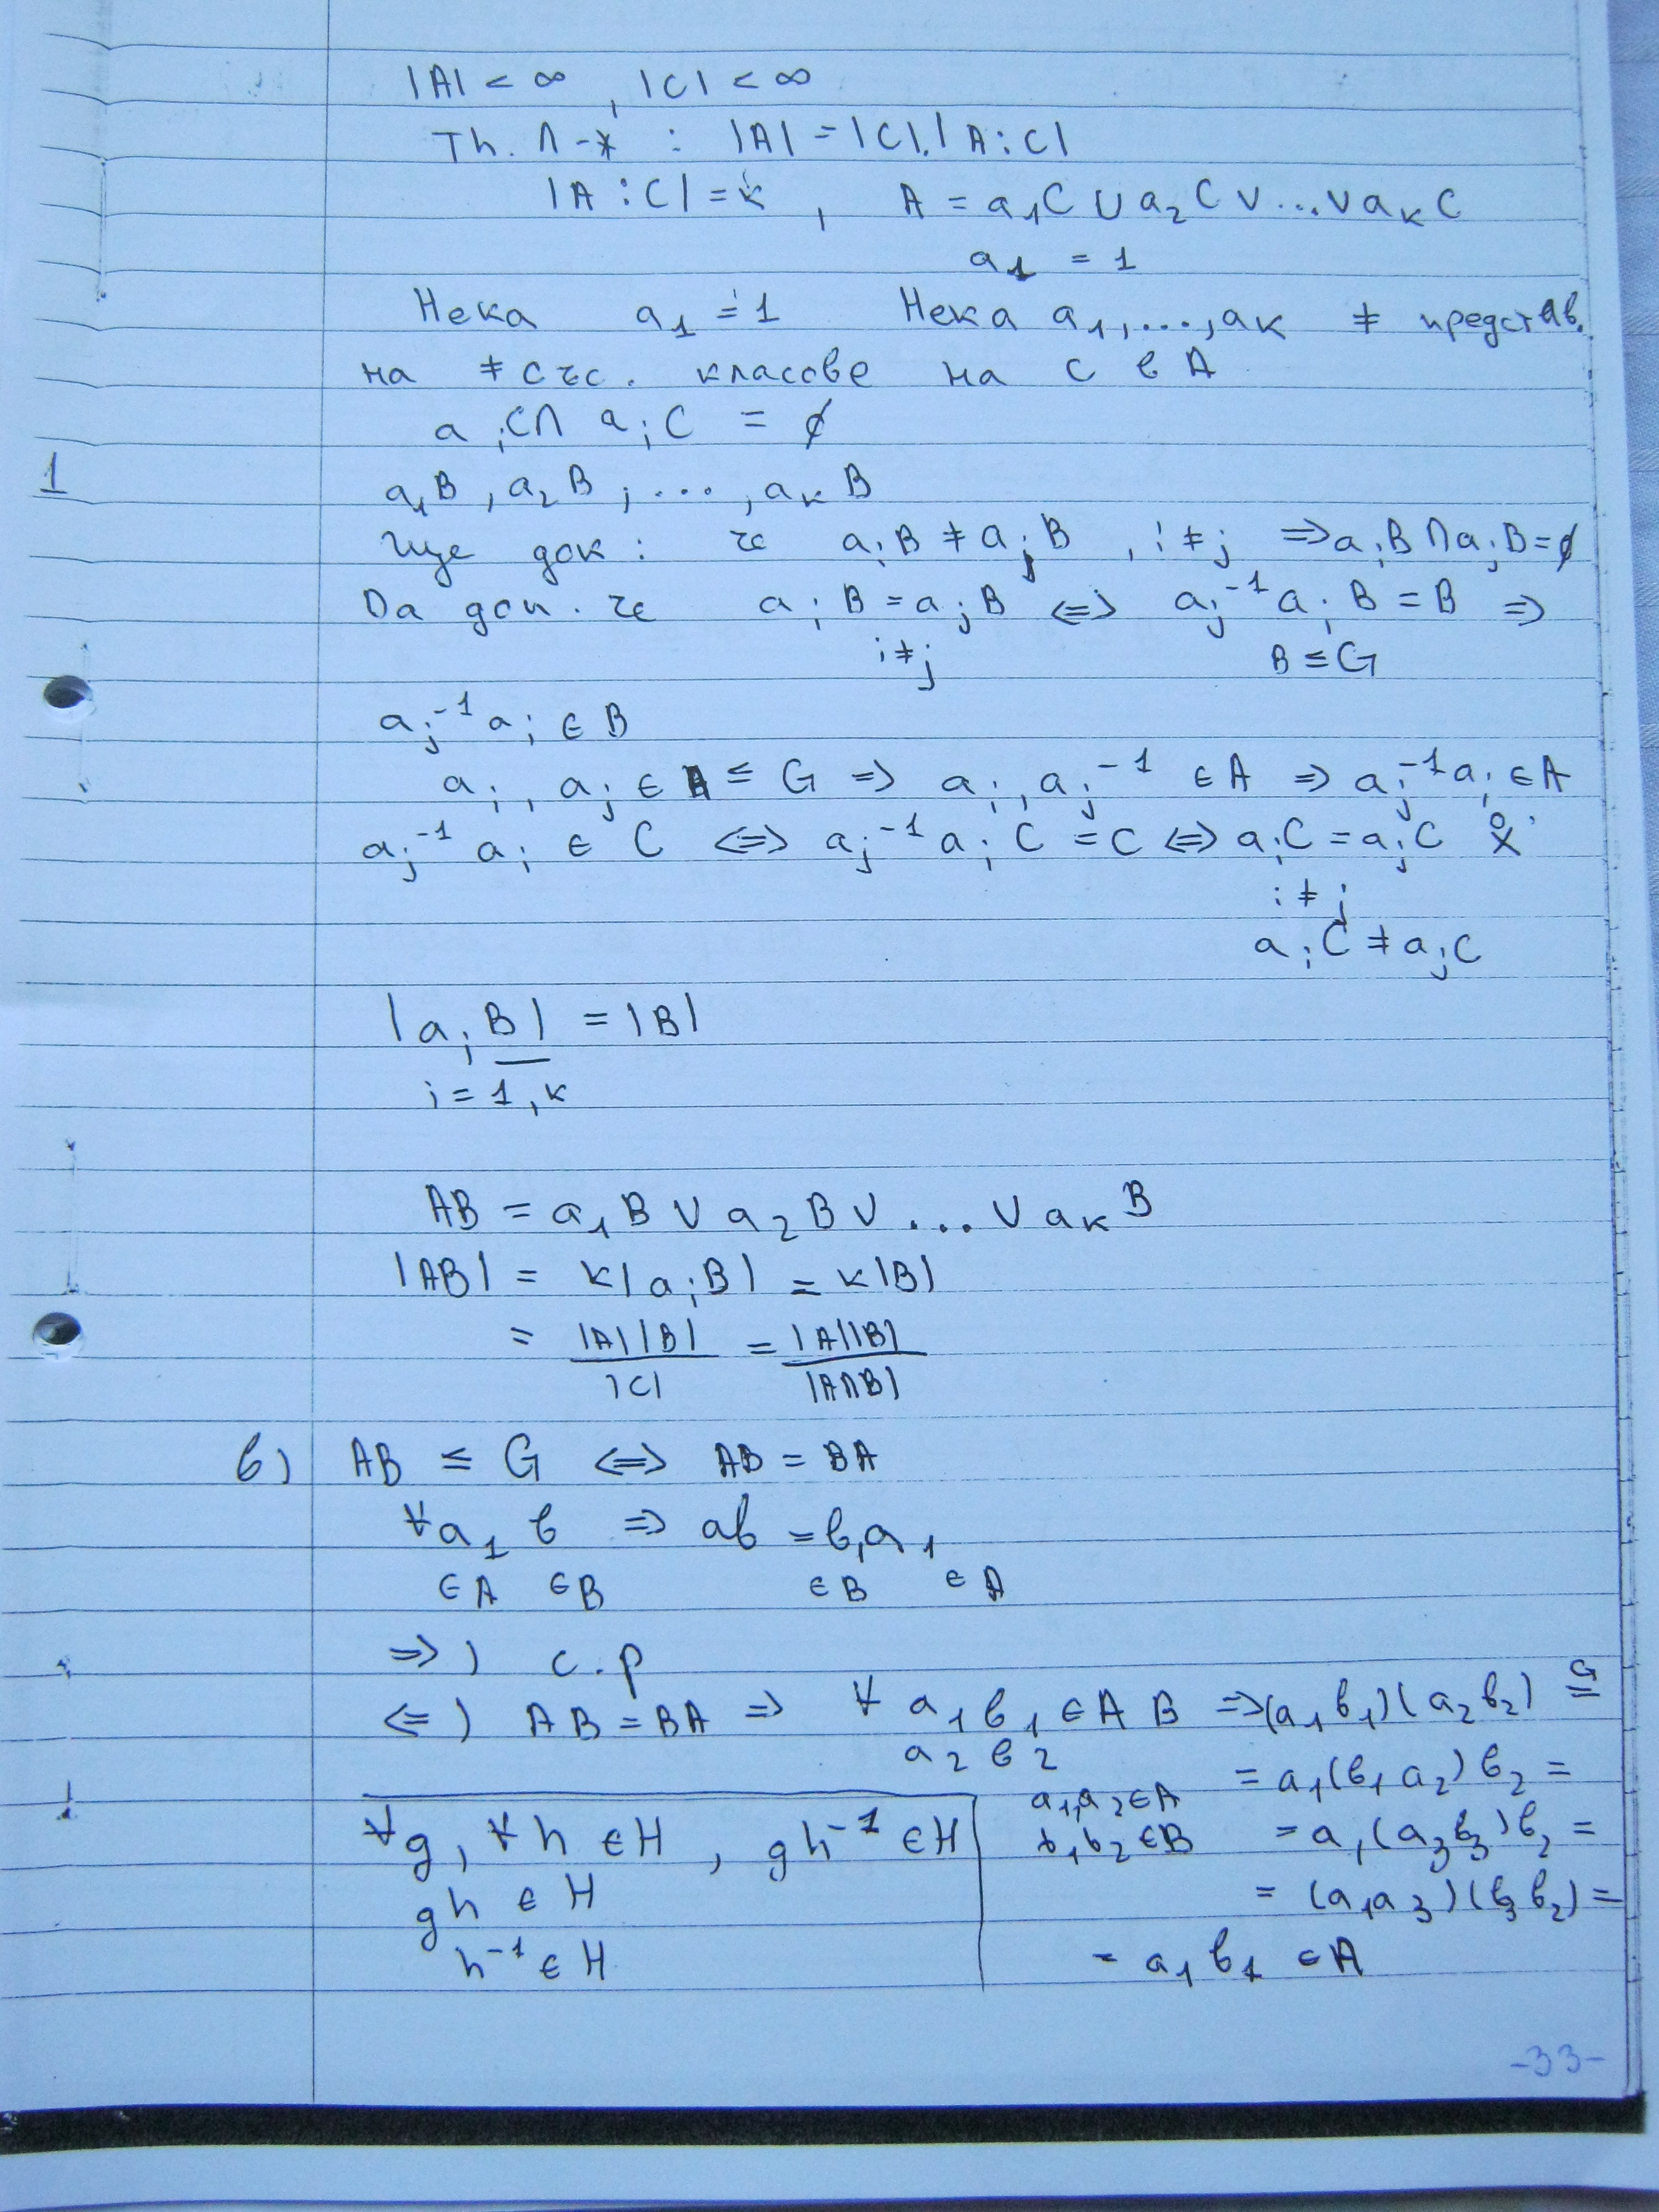 |A| < ∞ , |C| < ∞
Th. Л-ж : |A| = |C|.|A:C|
|A:C| = k , A = a₁C ∪ a₂C ∪ ... ∪ aₖC
a₁ = 1
Нека a₁ = 1 Нека a₁, ..., aₖ ≠ представ.
на ≠ със. класове на C в A
aᵢC ∩ aⱼC = ∅
1
a₁B, a₂B, ..., aₖB
Ще док: че aᵢB ≠ aⱼB , i ≠ j ⇒ aᵢB ∩ aⱼB = ∅
Да доп. че aᵢB = aⱼB ⇔ aⱼ⁻¹aᵢB = B ⇒
i ≠ j B ≤ G
aⱼ⁻¹aᵢ ∈ B
aᵢ, aⱼ ∈ A ≤ G ⇒ aᵢ, aⱼ⁻¹ ∈ A ⇒ aⱼ⁻¹aᵢ ∈ A
aⱼ⁻¹aᵢ ∈ C ⇔ aⱼ⁻¹aᵢC = C ⇔ aᵢC = aⱼC
i ≠ j
aᵢC ≠ aⱼC
|aᵢB| = |B|
i = 1,k
AB = a₁B ∪ a₂B ∪ ... ∪ aₖB
|AB| = k|aᵢB| = k|B|
= |A||B| / |C| = |A||B| / |A∩B|
в) AB ≤ G ⇔ AB = BA
∀a₁ в ⇒ aв = в₁a₁
∈A ∈B ∈B ∈A
⇒) с.р
⇐) AB = BA ⇒ ∀ a₁в₁ ∈ AB ⇒ (a₁в₁)(a₂в₂) =ᴳ
a₂в₂
a₁,a₂ ∈ A
в₁в₂ ∈ B
= a₁(в₁a₂)в₂ =
= a₁(a₃в₃)в₂ =
= (a₁a₃)(в₃в₂) =
= a₁в₁ ∈ A
∀g, ∀h ∈ H , gh⁻¹ ∈ H
gh ∈ H
h⁻¹ ∈ H
-33-